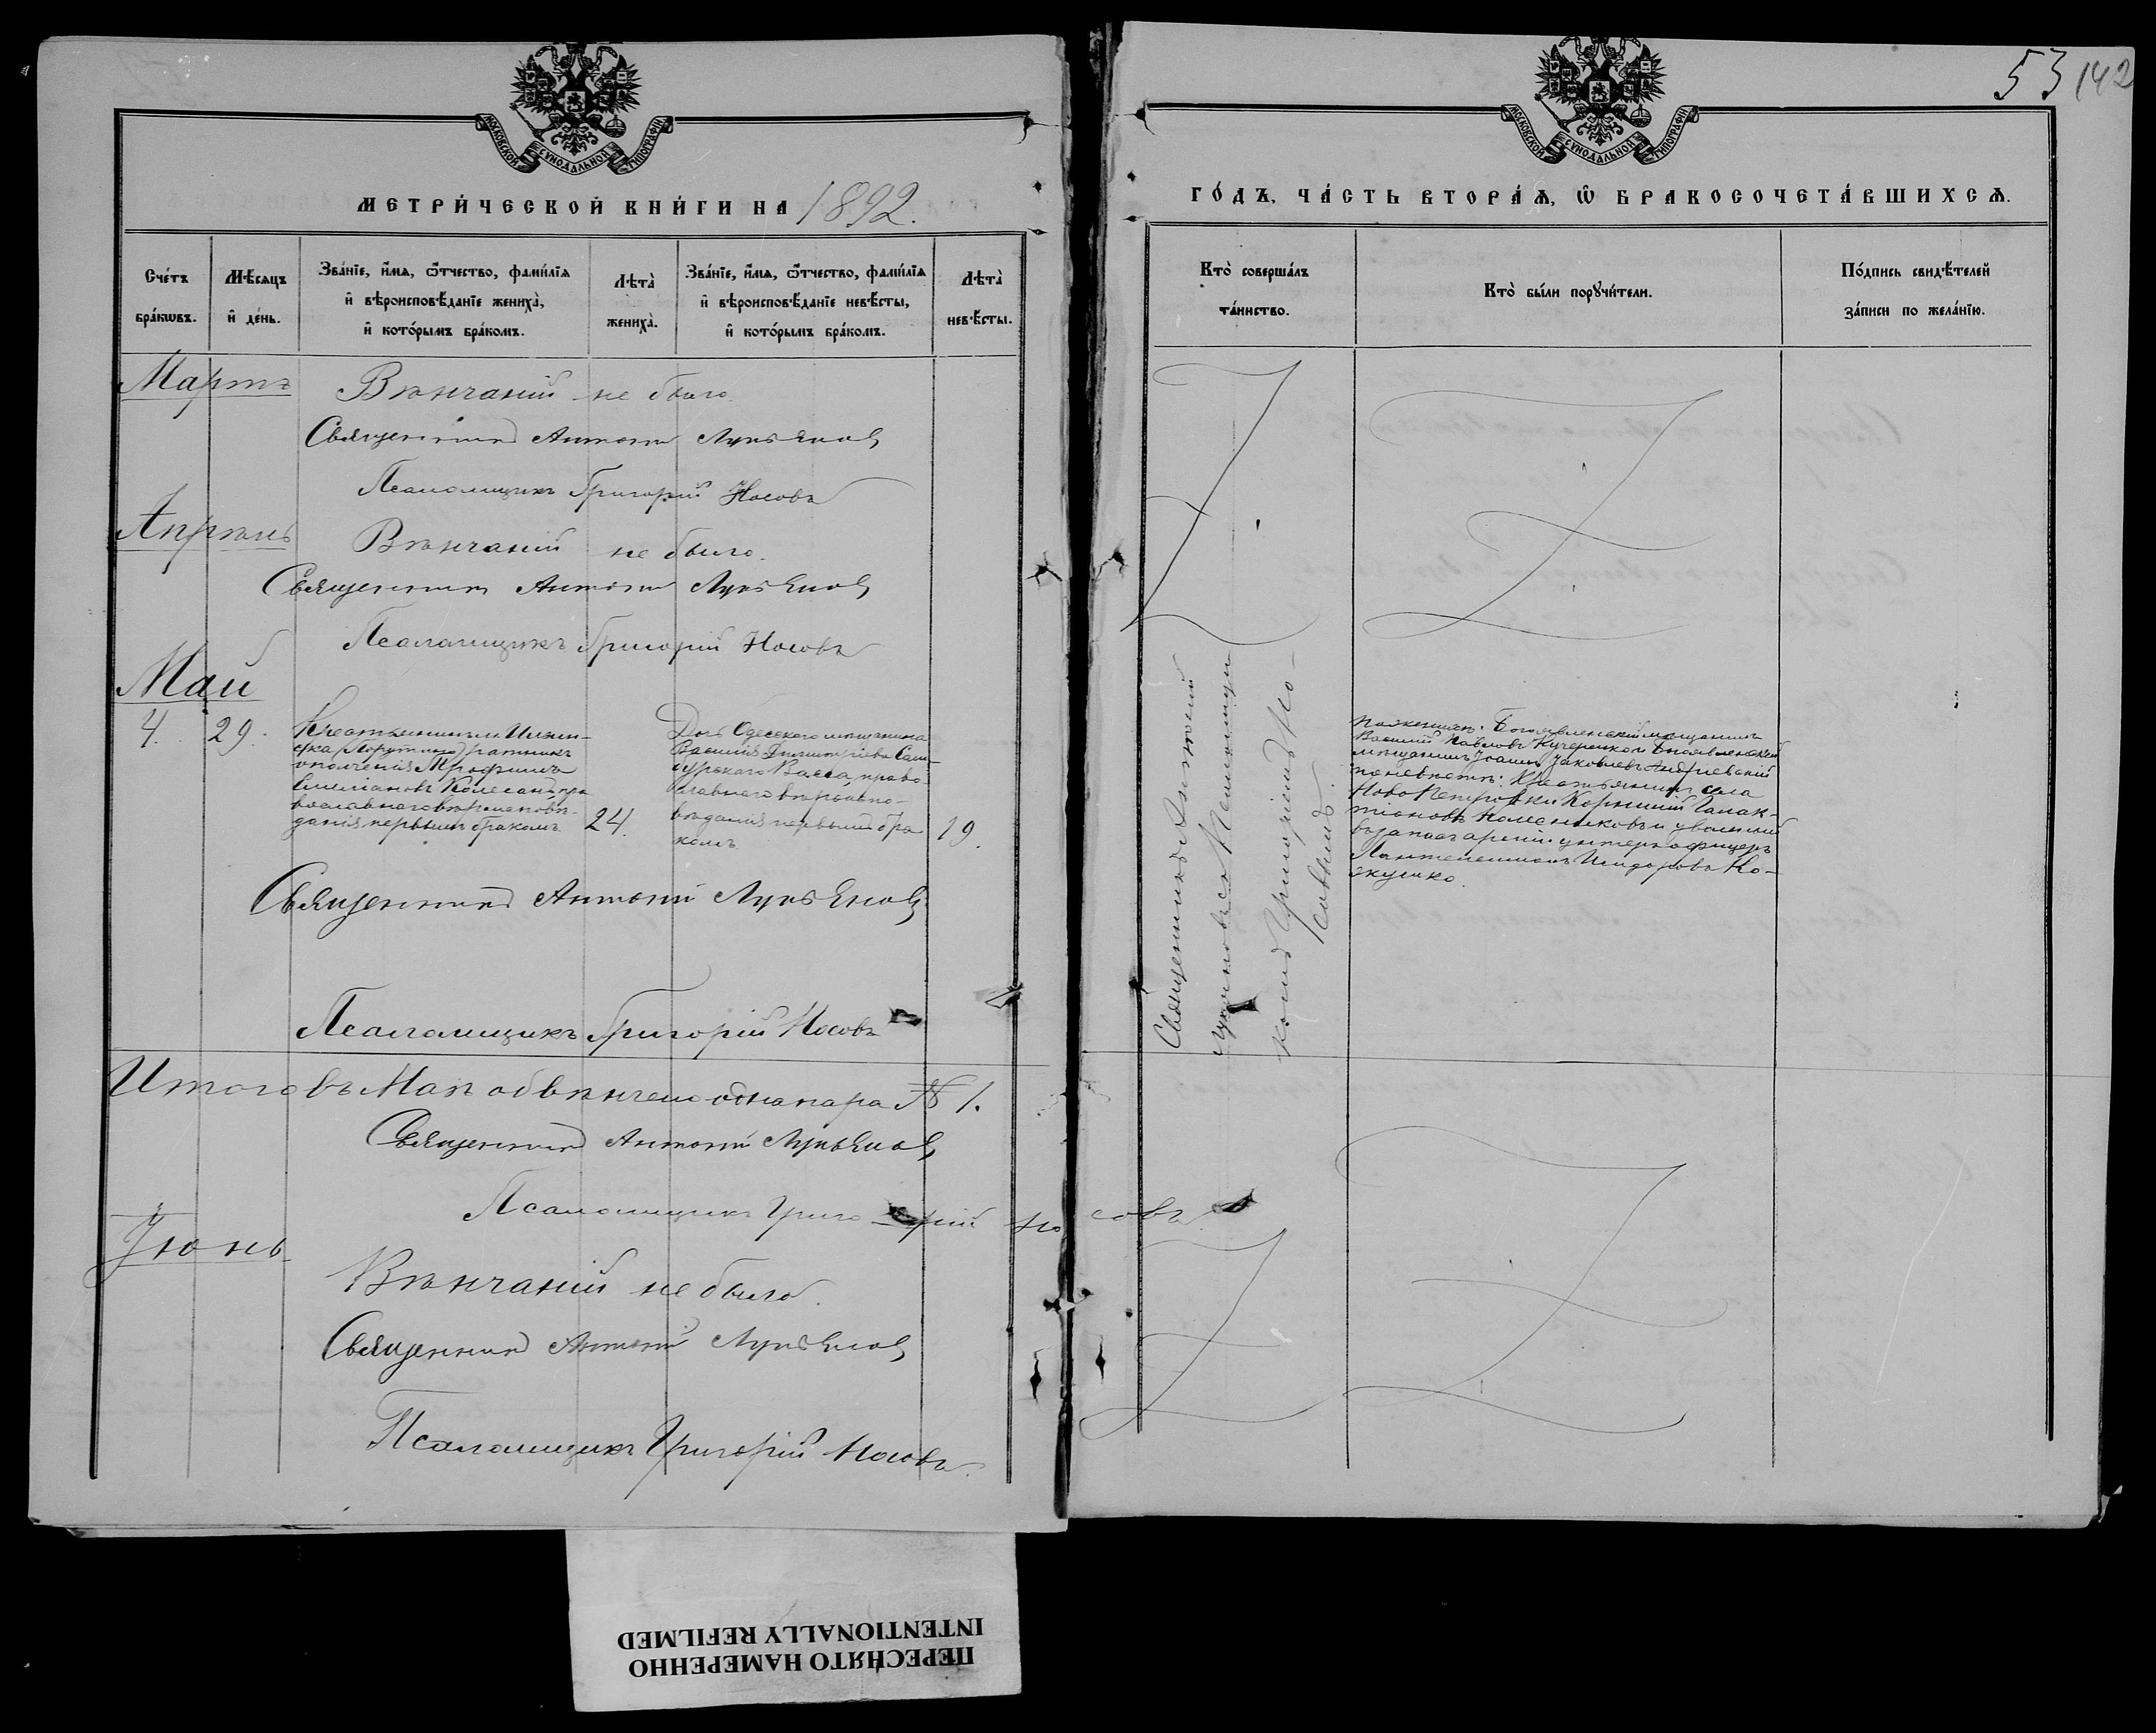 53 142
МОСКОВСКОЙ СѴНОДАЛЬНОЙ ТИПОГРАФІИ
МОСКОВСКОЙ СѴНОДАЛЬНОЙ ТИПОГРАФІИ
МЕТРИ́ЧЕСКОЙ КНИ́ГИ НА 1892.
ГО́ДЪ, ЧА́СТЬ ВТОРА́Ѧ, Ѽ БРАКОСОЧЕТА́ВШИХСѦ.
Сче́тъ бра́кѡвъ.
Мѣ́сѧцъ и҆ де́нь.
Зва́нїе, и҆́мѧ, ѻ҆́тчество, фамѝлїѧ и҆ вѣроисповѣ́данїе жениха̀, и҆ кото́рымъ бра́комъ.
Лѣта̀ жениха̀.
Зва́нїе, и҆́мѧ, ѻ҆́тчество, фамѝлїѧ и҆ вѣроисповѣ́данїе невѣ́сты, и҆ кото́рымъ бра́комъ.
Лѣта̀ невѣ́сты.
Кто̀ соверша́лъ та́инство.
Кто̀ бы́ли порꙋчи́тели.
По́дпись свидѣ́телей за́писи по жела́нїю.
Мартъ
Вѣнчаній не было.
Священникъ Антоній Лукьянов
Псаломщикъ Григорій Носовъ
Апрѣль
Вѣнчаній не было.
Священникъ Антоній Лукьянов
Псаломщикъ Григорій Носовъ
Май
4. 29.
Крестьянинъ
ратникъ
ополченія Трофимъ
Емеліановъ пра
вославнаго вѣроисповѣ-
данія, первымъ бракомъ
24.
Дочь Одесскаго мѣщанина
Василія Димитріева
Васса, право-
славнаго вѣроиспо-
вѣданія первымъ бра
комъ.
19.
Священникъ Антоній
Лукьяновъ съ Псаломщи
комъ Григоріемъ Но-
совымъ.
По женихѣ: Богоявленскій мѣщанинъ
Василий Павловъ Кучеренко и Богоявленскій
мѣщанинъ Іоаннъ Яковлевъ Андріевскій
по невѣстѣ: Крестьянинъ села
Ново Петровки Корнилій Галак-
тіоновъ и уволенный
въ запасъ арміи унтеръ офицеръ
Пантелеимонъ Исидоровъ
Священникъ Антоній Лукьянов
Псаломщикъ Григорій Носовъ
Итого въ Маѣ обвѣнчено одна пара № 1.
Священникъ Антоній Лукьянов
Псаломщикъ Григорій Носовъ
Іюнь
Вѣнчаній не было.
Священникъ Антоній Лукьянов
Псаломщикъ Григорій Носовъ.
ПЕРЕСНЯТО НАМЕРЕННО
INTENTIONALLY REFILMED